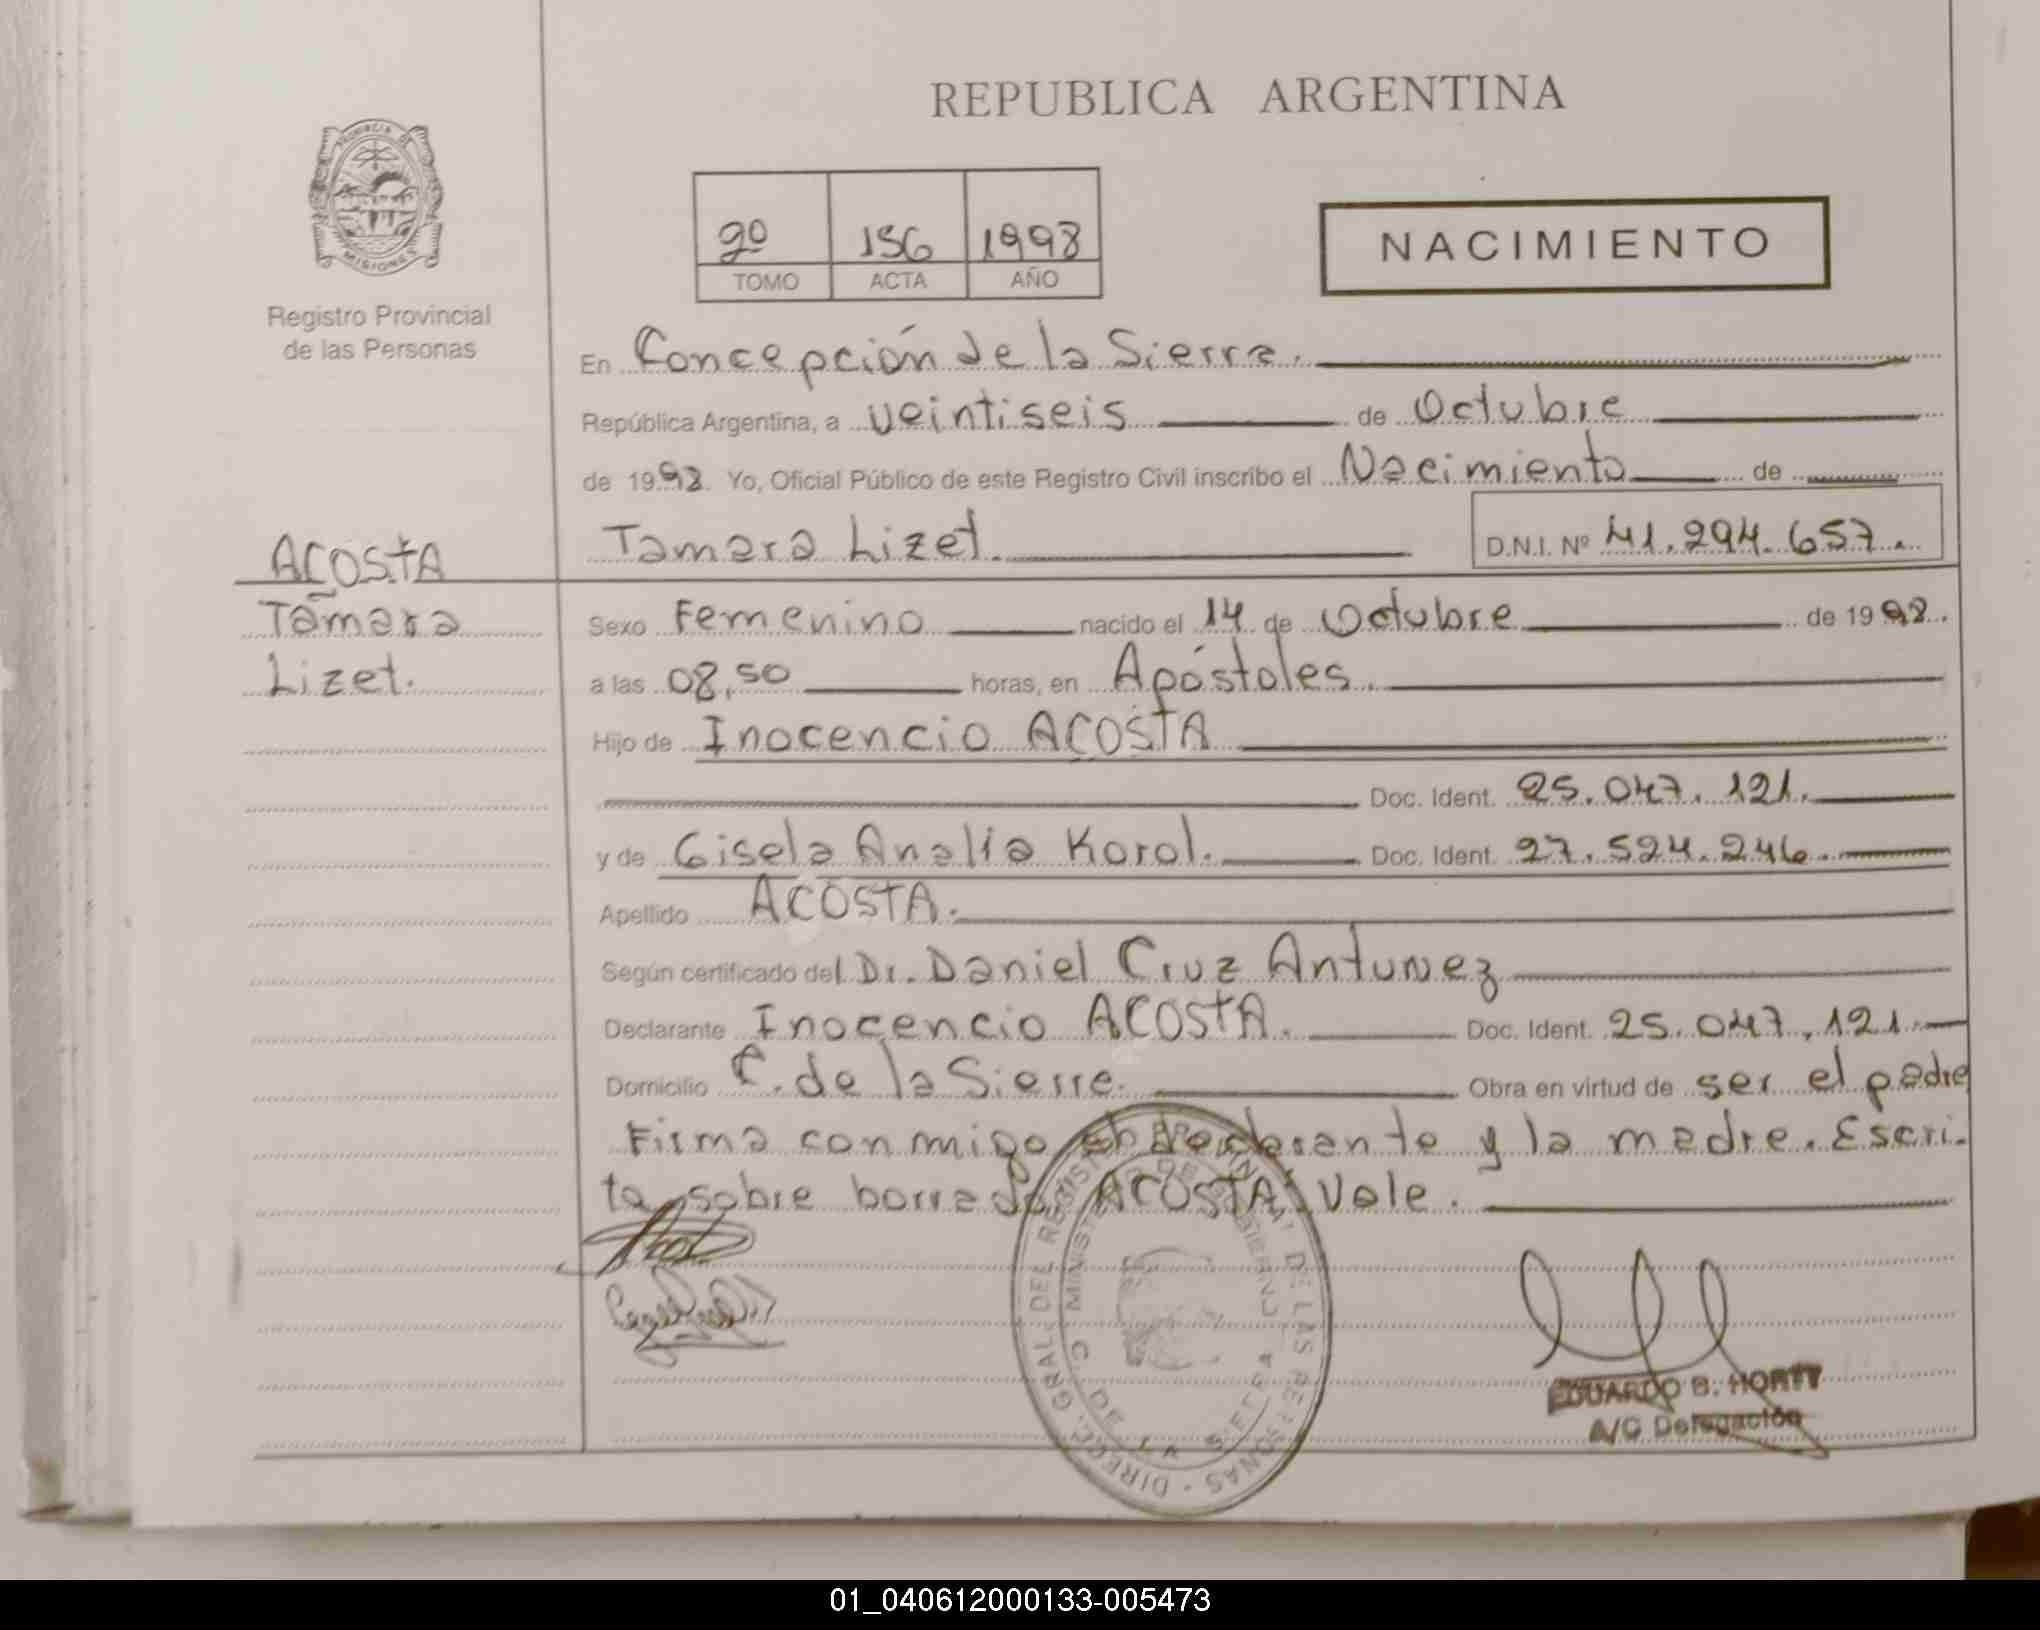 REPUBLICA ARGENTINA
PROVINCIA DE
MISIONES
Registro Provincial
de las Personas
2º 156 1998
TOMO ACTA AÑO
NACIMIENTO
En Concepción de la Sierra.
República Argentina, a veintiseis de Octubre
de 1998. Yo, Oficial Público de este Registro Civil inscribo el Nacimiento de
Tamara Lizet. D.N.I. Nº 41.294.657.
ACOSTA
Tamara
Lizet.
Sexo Femenino nacido el 14 de Octubre de 1998.
a las 08,50 horas, en Apóstoles.
Hijo de Inocencio ACOSTA
Doc. Ident. 25.047.121.
y de Gisela Analía Korol. Doc. Ident. 27.524.246.
Apellido ACOSTA.
Según certificado del Dr. Daniel Cruz Antunez
Declarante Inocencio ACOSTA. Doc. Ident. 25.047.121.
Domicilio C. de la Sierra. Obra en virtud de ser el padre
Firma conmigo el declarante y la madre. Escri-
to sobre borrado ACOSTA: Vale.
DIREC. GRAL. DEL REGIST DE LAS PERSONAS
MINISTERIO DE GOBIERNO
C. DE LA SIERRA
EDUARDO B. HORTT
A/C Delegación
01_040612000133-005473